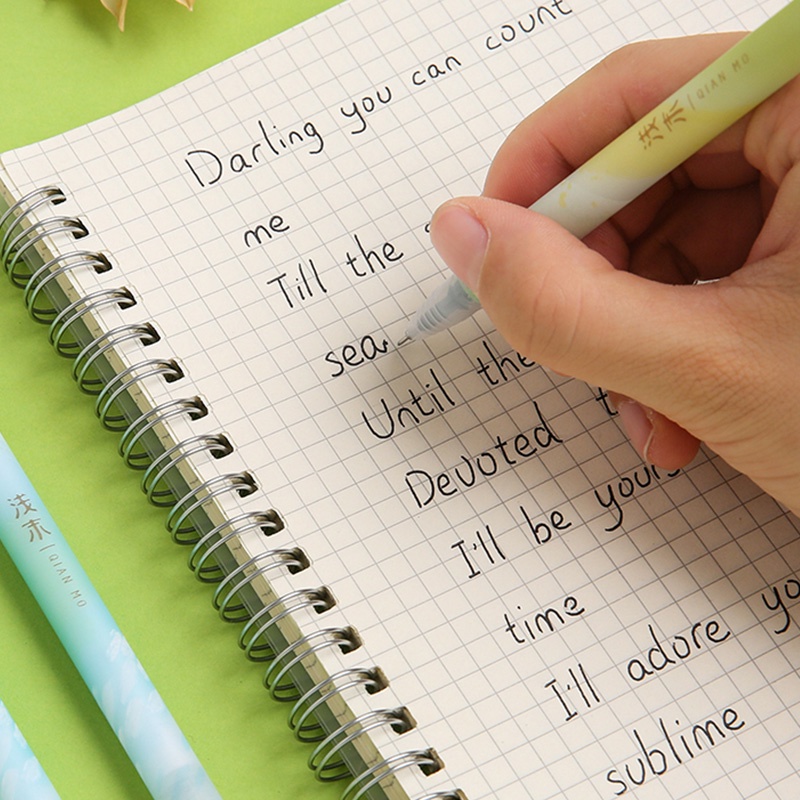 Darling you can count
me
Till the
sea
Until the
Devoted
I'll be yours
time
I'll adore
sublime
浅末 | QIAN MO
浅末 | QIAN MO